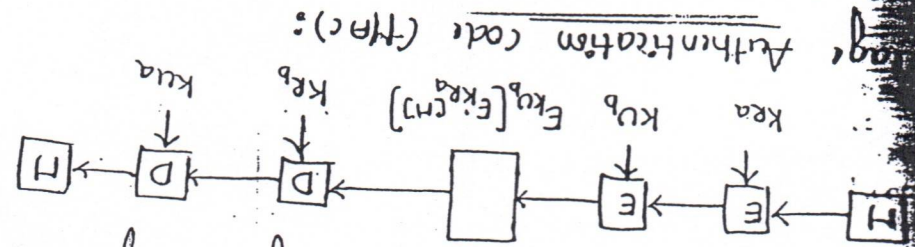 M E E D D M
KRa KUb E_KUb[E_KRa[M]] KRb KUa
age Authentication Code (MAC):